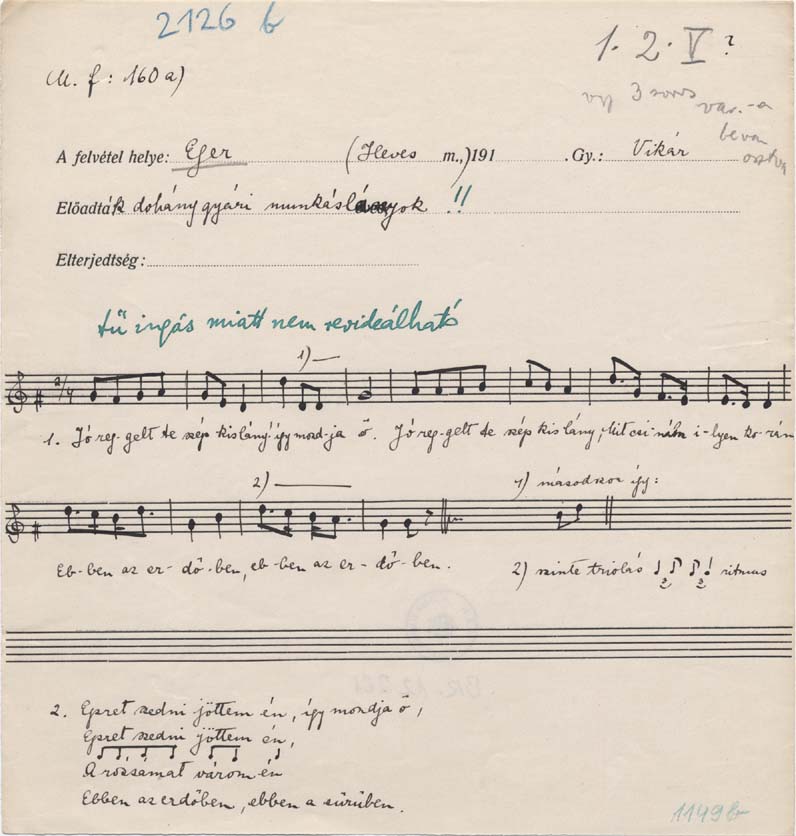 2126 b
1. 2. V ?
M. f: 160 a)
vö 3 soros
var. -a
be van
osztva
A felvétel helye: Eger (Heves m.,) 191 . Gy.: Vikár
Előadták dohánygyári munkáslányok !!
Elterjedtség:
tű ingás miatt nem revideálható
1)
2/4
1. Jó reg-gelt te szép kislány így mond-ja ő. Jó reg-gelt te szép kis lány, Mit csi-nálsz i-lyen ko-rán
2)
1) másodszor így:
Eb-ben az er-dő-ben, eb-ben az er-dő-ben.
2) szinte triolás ritmus
2. Epret szedni jöttem én, így mondja ő,
Epret szedni jöttem én,
A rózsámat várom én
Ebben az erdőben, ebben a sürüben.
1149 b